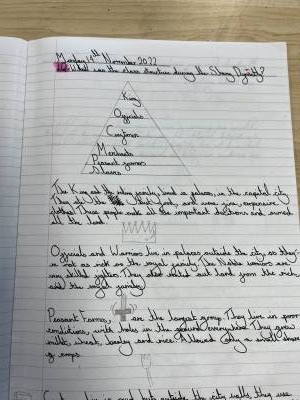 Monday 14th November 2022
LQ: What was the class structure during the Shang Dynasty?
King
Officials
Craftsmen
Merchants
Peasant farmers
Slaves
The King and the ruling family lived in palaces, in the capital city.
They ate the food, and wore fine, expensive
clothes. These people made all the important decisions and owned
all the land.
Officials and Warriors live in palaces outside the city, so they
is not as rich as the royal family. The Noble warriors
skilled
the royal family.
Peasant Farmers, are the largest group. They live in poor
conditions, with holes in the ground everywhere. They grew
millet, wheat, barley and rice. Allowed only a small share
of crops.
live in mud huts outside the city walls, they use